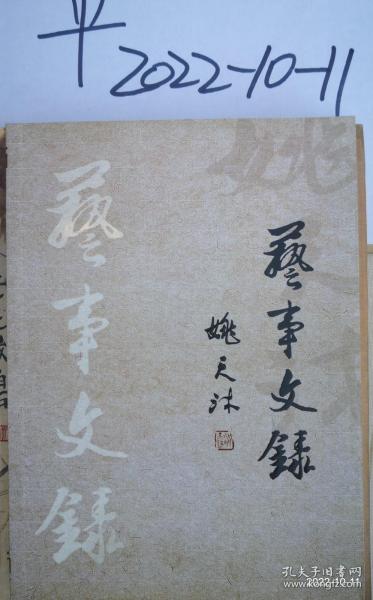 平
2022-10-11
藝事文錄
藝事文錄
姚天沐
2022-10-11
孔夫子旧书网
kongfz.com